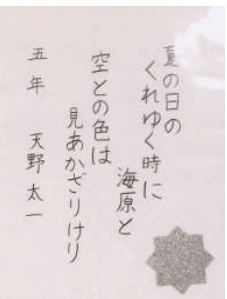 夏の日の
くれゆく時に
海原と
空との色は
見あかざりけり
五年 天野太一